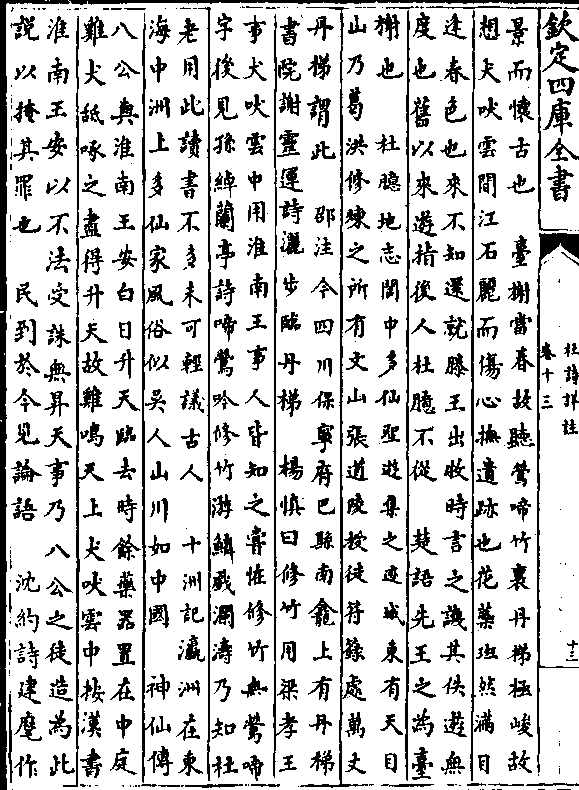 欽定四庫全書
杜詩詳註
卷十三
十三
景而懷古也　臺榭當春故聽鶯啼竹裏丹梯極峻故
想犬吠雲間江石麗而傷心撫遺跡也花蘂班然滿目
逢春色也來不知還就滕王出牧時言之譏其佚遊無
度也舊以來遊指後人杜臆不從　楚語先王之為臺
榭也　杜臆地志閬中多仙聖遊集之迹城東有天目
山乃葛洪修練之所有文山張道陵授徒符籙處萬丈
丹梯謂此　邵注今四川保寧府巴縣南龕上有丹梯
書院謝靈運詩灑步臨丹梯　楊慎曰修竹用梁孝王
事犬吠雲中用淮南王事人皆知之嘗怪修竹無鶯啼
字後見孫綽蘭亭詩啼鶯吟修竹游鱗戲瀾濤乃知杜
老用此讀書不多未可輕議古人　十洲記瀛洲在東
海中洲上多仙家風俗似吳人山川如中國　神仙傳
八公與淮南王安白日升天臨去時餘藥器置在中庭
雞犬舐啄之盡得升天故雞鳴天上犬吠雲中按漢書
淮南王安以不法受誅無昇天事乃八公之徒造為此
說以掩其罪也　民到於今見論語　沈約詩建麾作